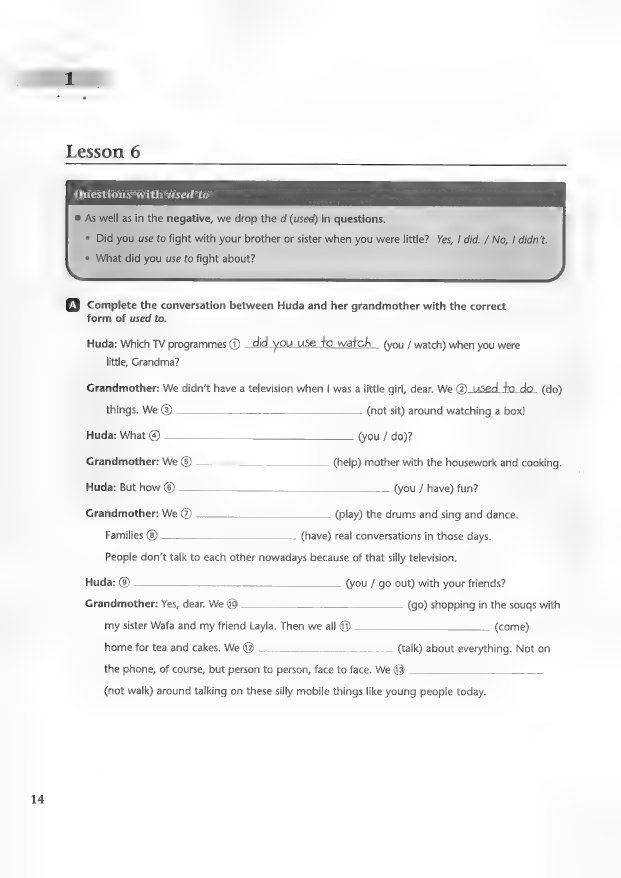 1
Lesson 6
Questions with used to
• As well as in the negative, we drop the d (used) in questions.
• Did you use to fight with your brother or sister when you were little? Yes, I did. / No, I didn't.
• What did you use to fight about?
A Complete the conversation between Huda and her grandmother with the correct
form of used to.
Huda: Which TV programmes ① did you use to watch (you / watch) when you were
little, Grandma?
Grandmother: We didn't have a television when I was a little girl, dear. We ② used to do (do)
things. We ③ ____________ (not sit) around watching a box!
Huda: What ④ ____________ (you / do)?
Grandmother: We ⑤ ____________ (help) mother with the housework and cooking.
Huda: But how ⑥ ____________ (you / have) fun?
Grandmother: We ⑦ ____________ (play) the drums and sing and dance.
Families ⑧ ____________ (have) real conversations in those days.
People don't talk to each other nowadays because of that silly television.
Huda: ⑨ ____________ (you / go out) with your friends?
Grandmother: Yes, dear. We ⑩ ____________ (go) shopping in the souqs with
my sister Wafa and my friend Layla. Then we all ⑪ ____________ (come)
home for tea and cakes. We ⑫ ____________ (talk) about everything. Not on
the phone, of course, but person to person, face to face. We ⑬ ____________
(not walk) around talking on these silly mobile things like young people today.
14